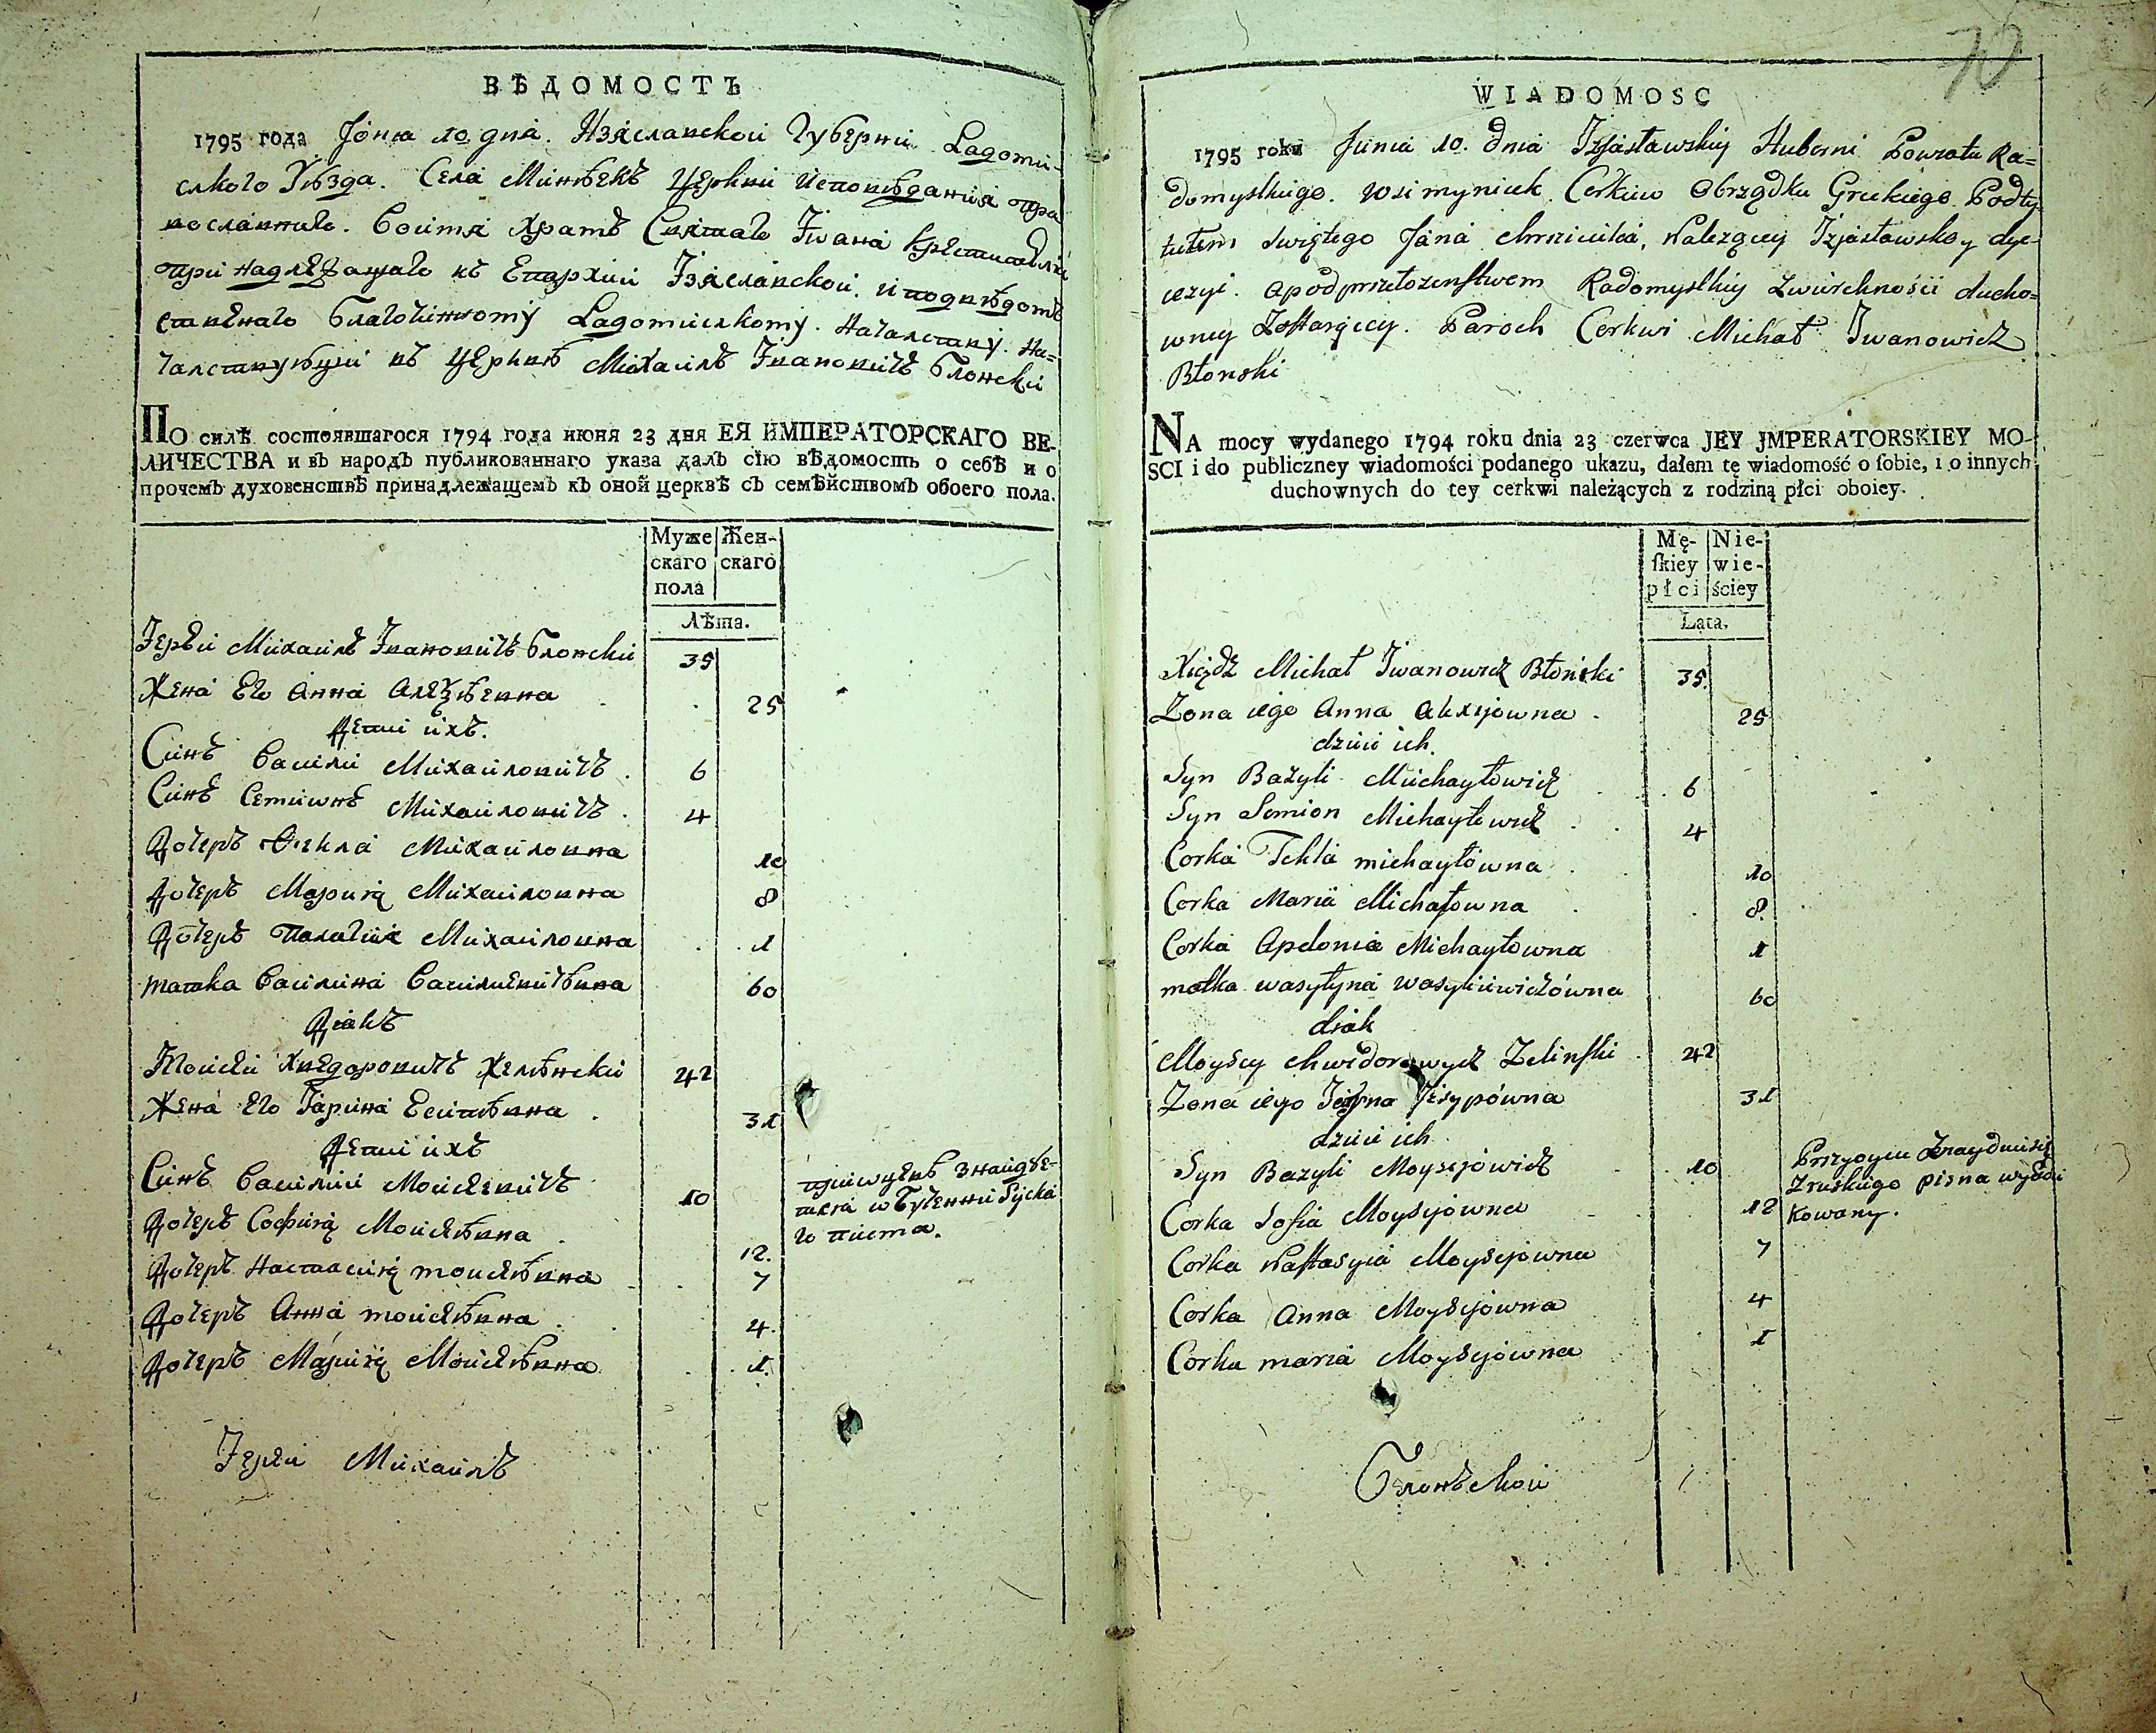 ВѢДОМОСТЬ
1795 года Іюня 10 дня. Изяславской Губерніи Радоми-
слкого Уѣзда. Села Минѣекъ Церкви Исповѣданія пра
вославнаго. Воимя Храмъ Святаго Іоана Крестителя
при надлежащаго къ Епархіи Ізяславской. и подвѣдомъ
ственаго Благочинному Радомислкому. Началству. На=
чалствующи въ Церквѣ Михаилъ Івановичъ Блонски
ПО силѣ состоявшагося 1794 года июня 23 дня ЕЯ ИМПЕРАТОРСКАГО ВЕ-
ЛИЧЕСТВА и въ народъ публикованнаго указа далъ сїю вѣдомость о себѣ и о
прочемъ духовенствѣ принадлежащемъ къ оной церквѣ съ семѣйствомъ обоего пола.
Муже Жен-
скаго скаго
пола
Лѣта.
Іерей Михаилъ Івановичъ Блонски 35
Жена Его Анна Алеѯѣевна 25
Дети ихъ.
Синъ Василий Михаиловичъ 6
Синъ Семионъ Михаиловичъ 4
Дочеръ Ѳекла Михаиловна 10
Дочеръ Мария Михаиловна 8
Дочеръ Палагия Михаиловна 1
матка Василина Василиевичѣвна 60
Діакъ
Моисей Хведоровичъ Желѣнски 42
Жена Его Гарина Есипѣвна 31
Дети ихъ
Синъ Василий Моисеевичъ 10 при отцевѣ знайдѣе-
тся и обученни Руска
го писма.
Дочеръ София Моисеѣвна 12.
Дочеръ Настасия моисеѣвна 7
Дочеръ Анна моисеѣвна 4.
Дочеръ Мария Моисеѣвна 1.
Іерей Михаилъ
70
WIADOMOSC
1795 roku Junia 10. Dnia Izjasławskiy Huberni Powiatu Ra=
domyslkiego. wsi myniek Cerkiew Obrządku Greckiego. Podty
tułem swiętego Jana chrziciela, Należącey Izjasławskoy dye-
cezyi. a pod przełozenstwem Radomyslkiy Zwierchności ducho=
wney Zostaiącey. Paroch Cerkwi Michał Iwanowicz
Błonski
NA mocy wydanego 1794 roku dnia 23 czerwca JEY JMPERATORSKIEY MO-
SCI i do publiczney wiadomości podanego ukazu, dałem tę wiadomość o sobie, i o innych
duchownych do tey cerkwi należących z rodziną płci oboiey.
Mę- Nie-
skiey wie-
płci ściey
Lata.
Xiądz Michał Iwanowicz Błonski 35.
Zona iego Anna Alexijowna 25
dzieci ich.
Syn Bazyli Michayłowicz 6
Syn Semion Michayłowicz 4
Corka Tekla michayłowna 10
Corka Maria Michałowna 8.
Corka Apolonia Michayłowna 1
matka wasyłyna wasyliewiczówna 60
diak
Moysey chwedorowycz Zelinski 42
Zona iego Jesypówna 31
dzieci ich
Syn Bazyli Moysejowicz 10 Przyoycu Znayduiesię
Zruskiego pisma
kowany.
Corka Sofia Moysejowna 12
Corka Nastasyia Moysejowna 7
Corka Anna Moysejowna 4
Corka maria Moysejowna 1
Блонъской